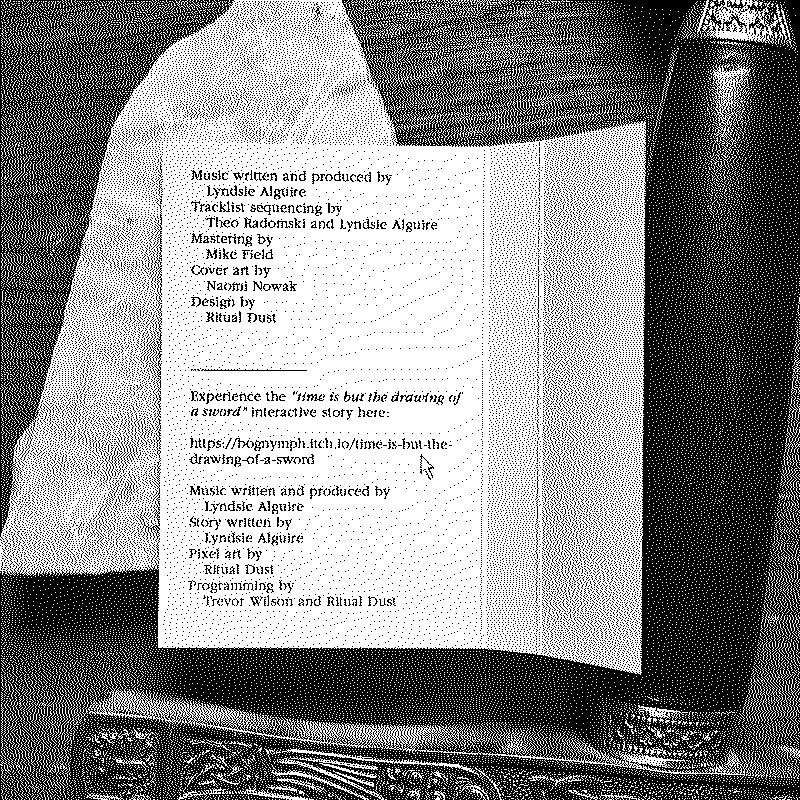 Music written and produced by
Lyndsie Alguire
Tracklist sequencing by
Theo Radomski and Lyndsie Alguire
Mastering by
Mike Field
Cover art by
Naomi Nowak
Design by
Ritual Dust
Experience the "time is but the drawing of
a sword" interactive story here:
https://bognymph.itch.io/time-is-but-the-
drawing-of-a-sword
Music written and produced by
Lyndsie Alguire
Story written by
Lyndsie Alguire
Pixel art by
Ritual Dust
Programming by
Trevor Wilson and Ritual Dust